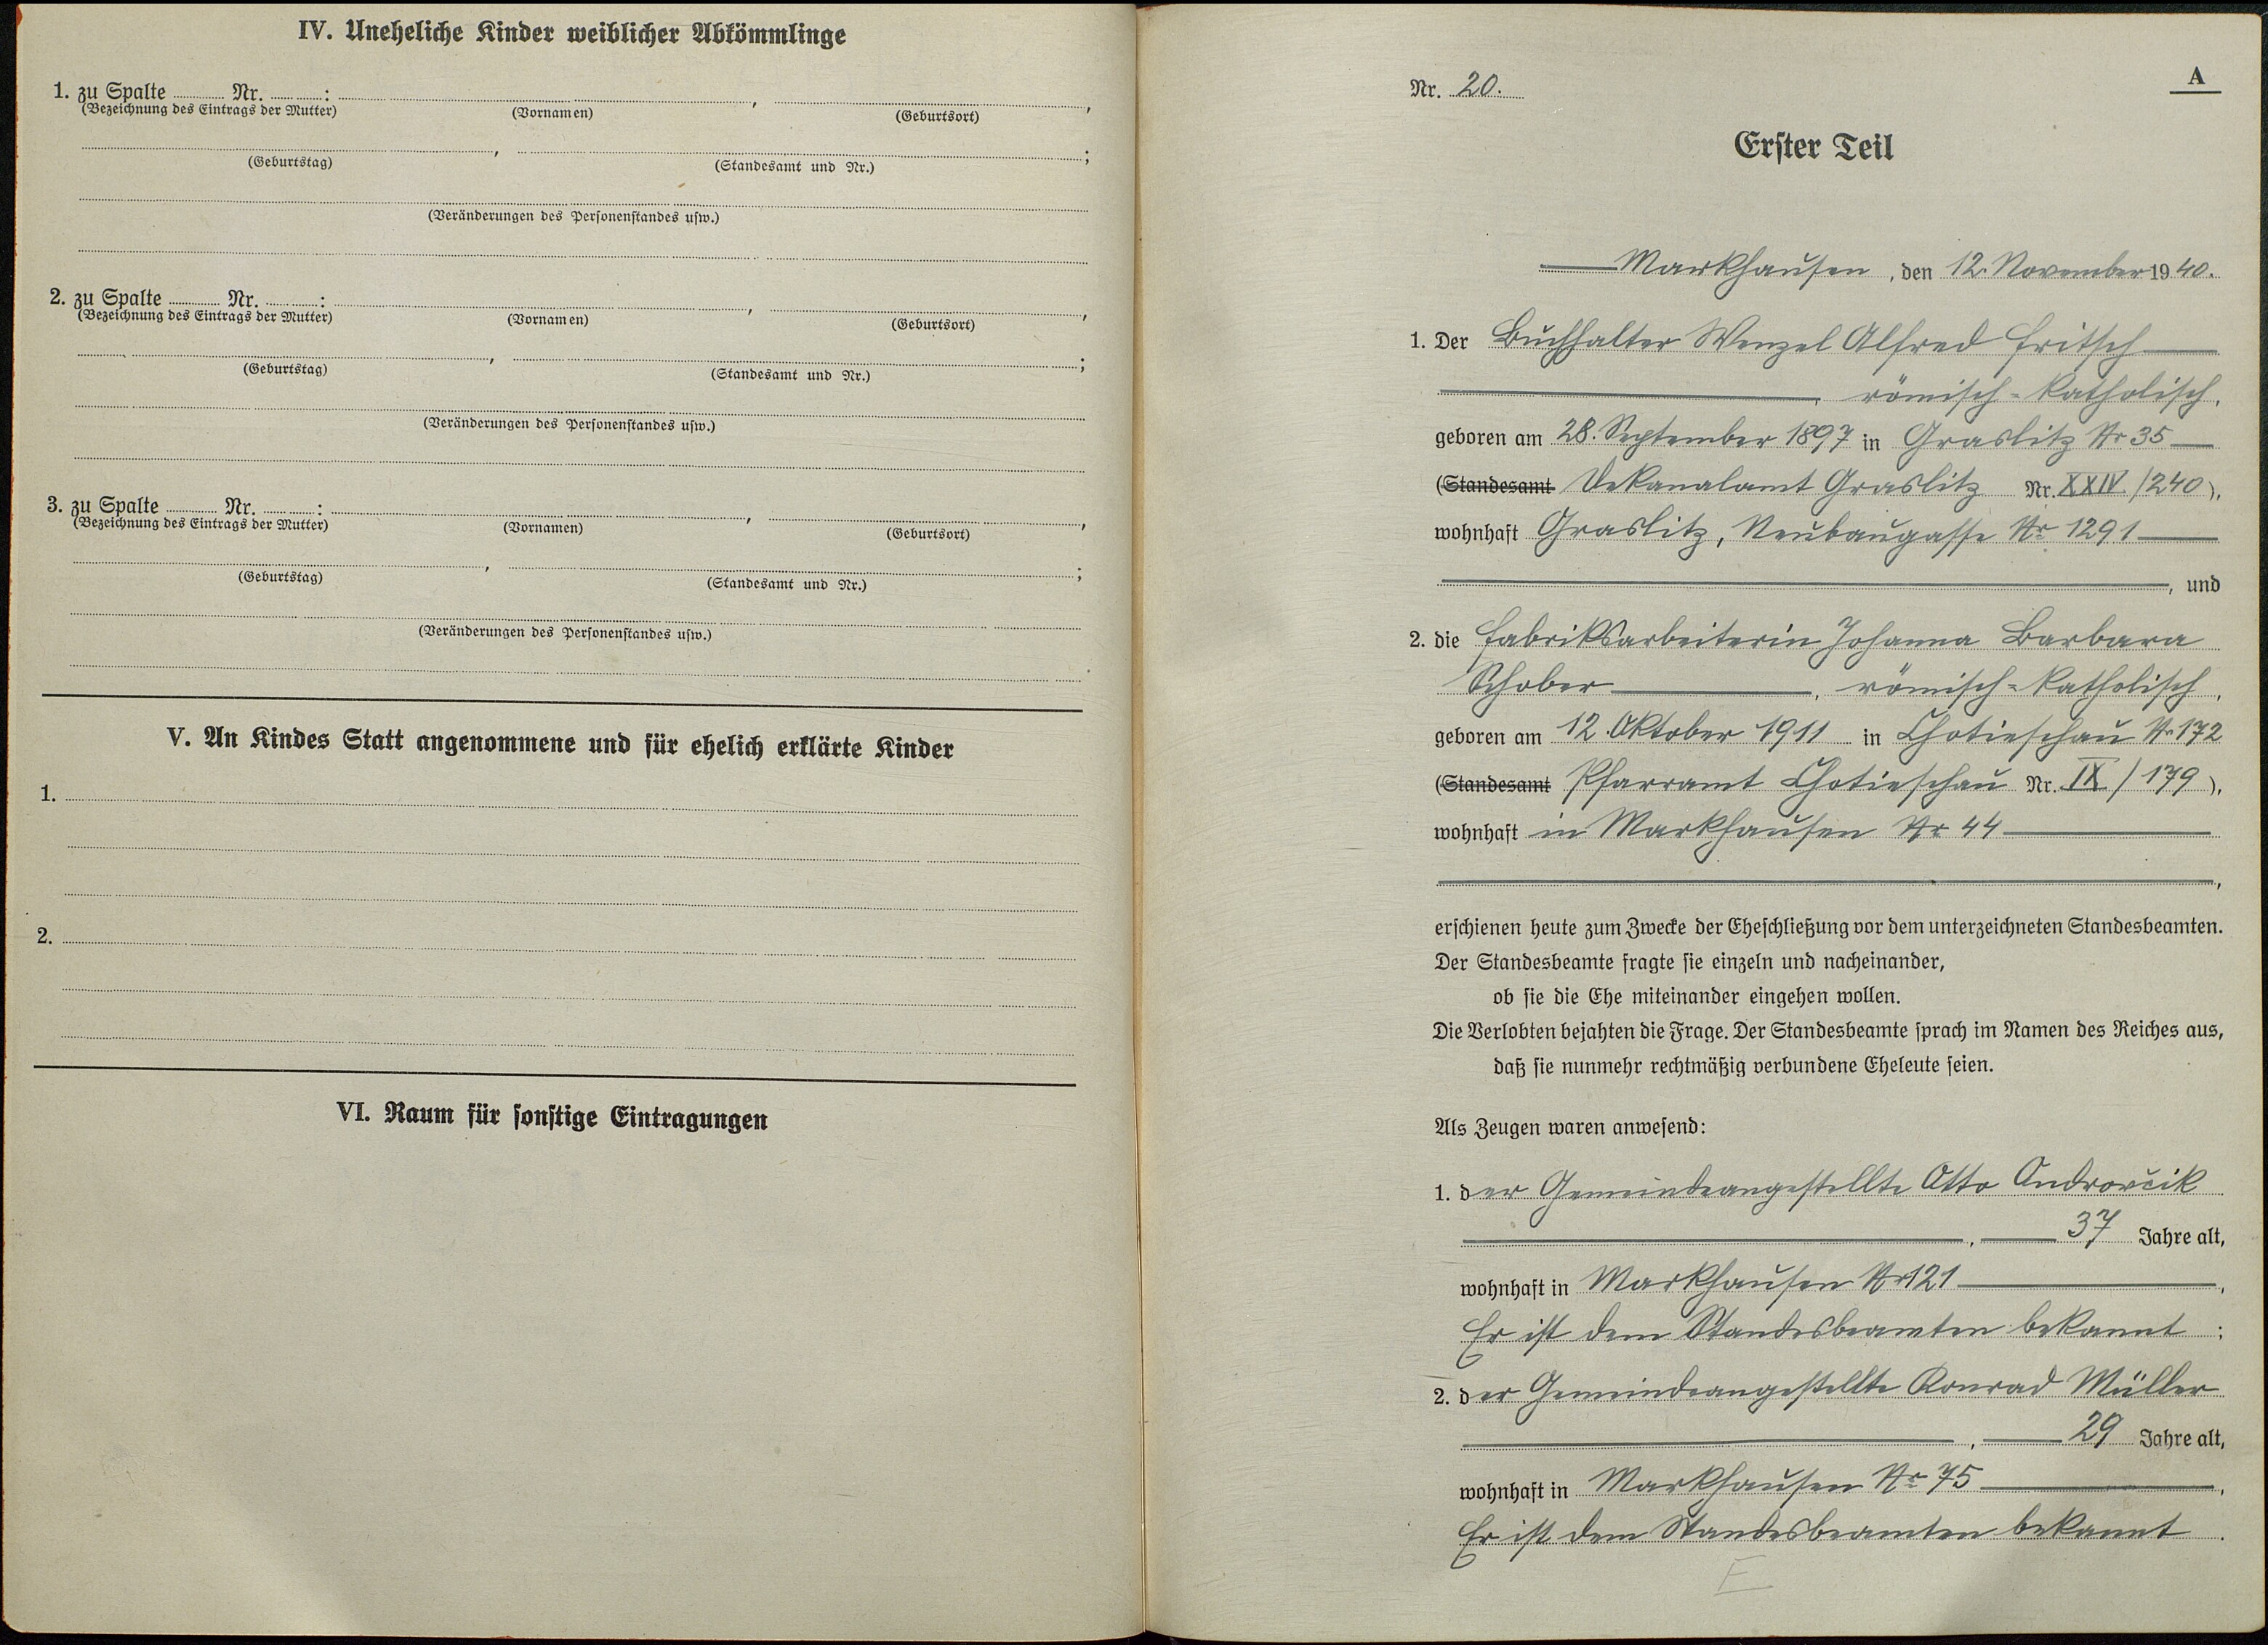 IV. Uneheliche Kinder weiblicher Abkömmlinge
1. zu Spalte ........ Nr. ........: ........, ........,
(Bezeichnung des Eintrags der Mutter) (Vornamen) (Geburtsort)
........, ........;
(Geburtstag) (Standesamt und Nr.)
(Veränderungen des Personenstandes usw.)
2. zu Spalte ........ Nr. ........: ........, ........,
(Bezeichnung des Eintrags der Mutter) (Vornamen) (Geburtsort)
........, ........;
(Geburtstag) (Standesamt und Nr.)
(Veränderungen des Personenstandes usw.)
3. zu Spalte ........ Nr. ........: ........, ........,
(Bezeichnung des Eintrags der Mutter) (Vornamen) (Geburtsort)
........, ........;
(Geburtstag) (Standesamt und Nr.)
(Veränderungen des Personenstandes usw.)
V. An Kindes Statt angenommene und für ehelich erklärte Kinder
1.
2.
VI. Raum für sonstige Eintragungen
A
Nr. 20.
Erster Teil
Markhausen, den 12. November 1940.
1. Der Buchhalter Wenzel Alfred Fritsch
, römisch-katholisch,
geboren am 28. September 1897 in Graslitz Nr 35
(Standesamt Dekanalamt Graslitz Nr. XXIV./240),
wohnhaft Graslitz, Neubaugasse Nr 1291
, und
2. die Fabriksarbeiterin Johanna Barbara
Schober, römisch-katholisch,
geboren am 12. Oktober 1911 in Chotieschau Nr 172
(Standesamt Pfarramt Chotieschau Nr. IX/179),
wohnhaft in Markhausen Nr 44
,
erschienen heute zum Zwecke der Eheschließung vor dem unterzeichneten Standesbeamten.
Der Standesbeamte fragte sie einzeln und nacheinander,
ob sie die Ehe miteinander eingehen wollen.
Die Verlobten bejahten die Frage. Der Standesbeamte sprach im Namen des Reiches aus,
daß sie nunmehr rechtmäßig verbundene Eheleute seien.
Als Zeugen waren anwesend:
1. der Gemeindeangestellte Otto Androvčik
, 37 Jahre alt,
wohnhaft in Markhausen Nr 121,
Er ist dem Standesbeamten bekannt;
2. der Gemeindeangestellte Konrad Müller
, 29 Jahre alt,
wohnhaft in Markhausen Nr 75,
Er ist dem Standesbeamten bekannt.
E